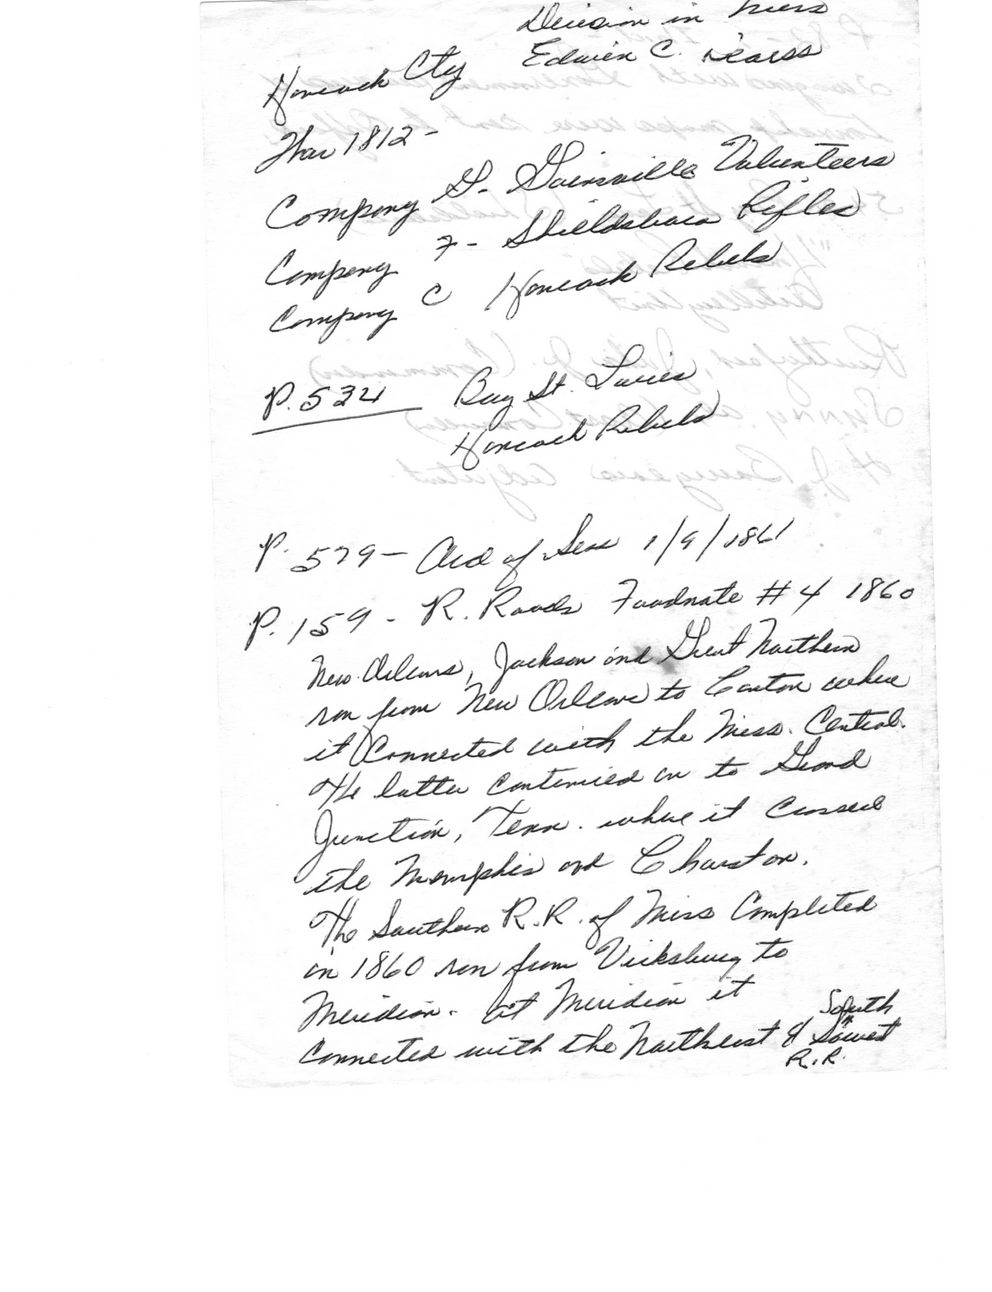 Decision in Miss
Edwin C. Bearss
Hancock Cty
War 1812-
Company G- Gainsville Volunteers
Company F- Shieldsboro Rifles
Company C Hancock Rebels
P. 534 Bay St. Louis
Hancock Rebels
P. 579- Ord of Sess 1/9/1861
P. 159- R. Roads Footnote # 4 1860
New Orleans, Jackson and Great Northern
ran from New Orleans to Canton where
it connected with the Miss. Central.
The latter continued on to Grand
Junction, Tenn. where it crossed
the Memphis and Charston.
The Southern R.R. of Miss Completed
in 1860 ran from Vicksburg to
Meridian. At Meridian it South
connected with the Northeast &
R.R.